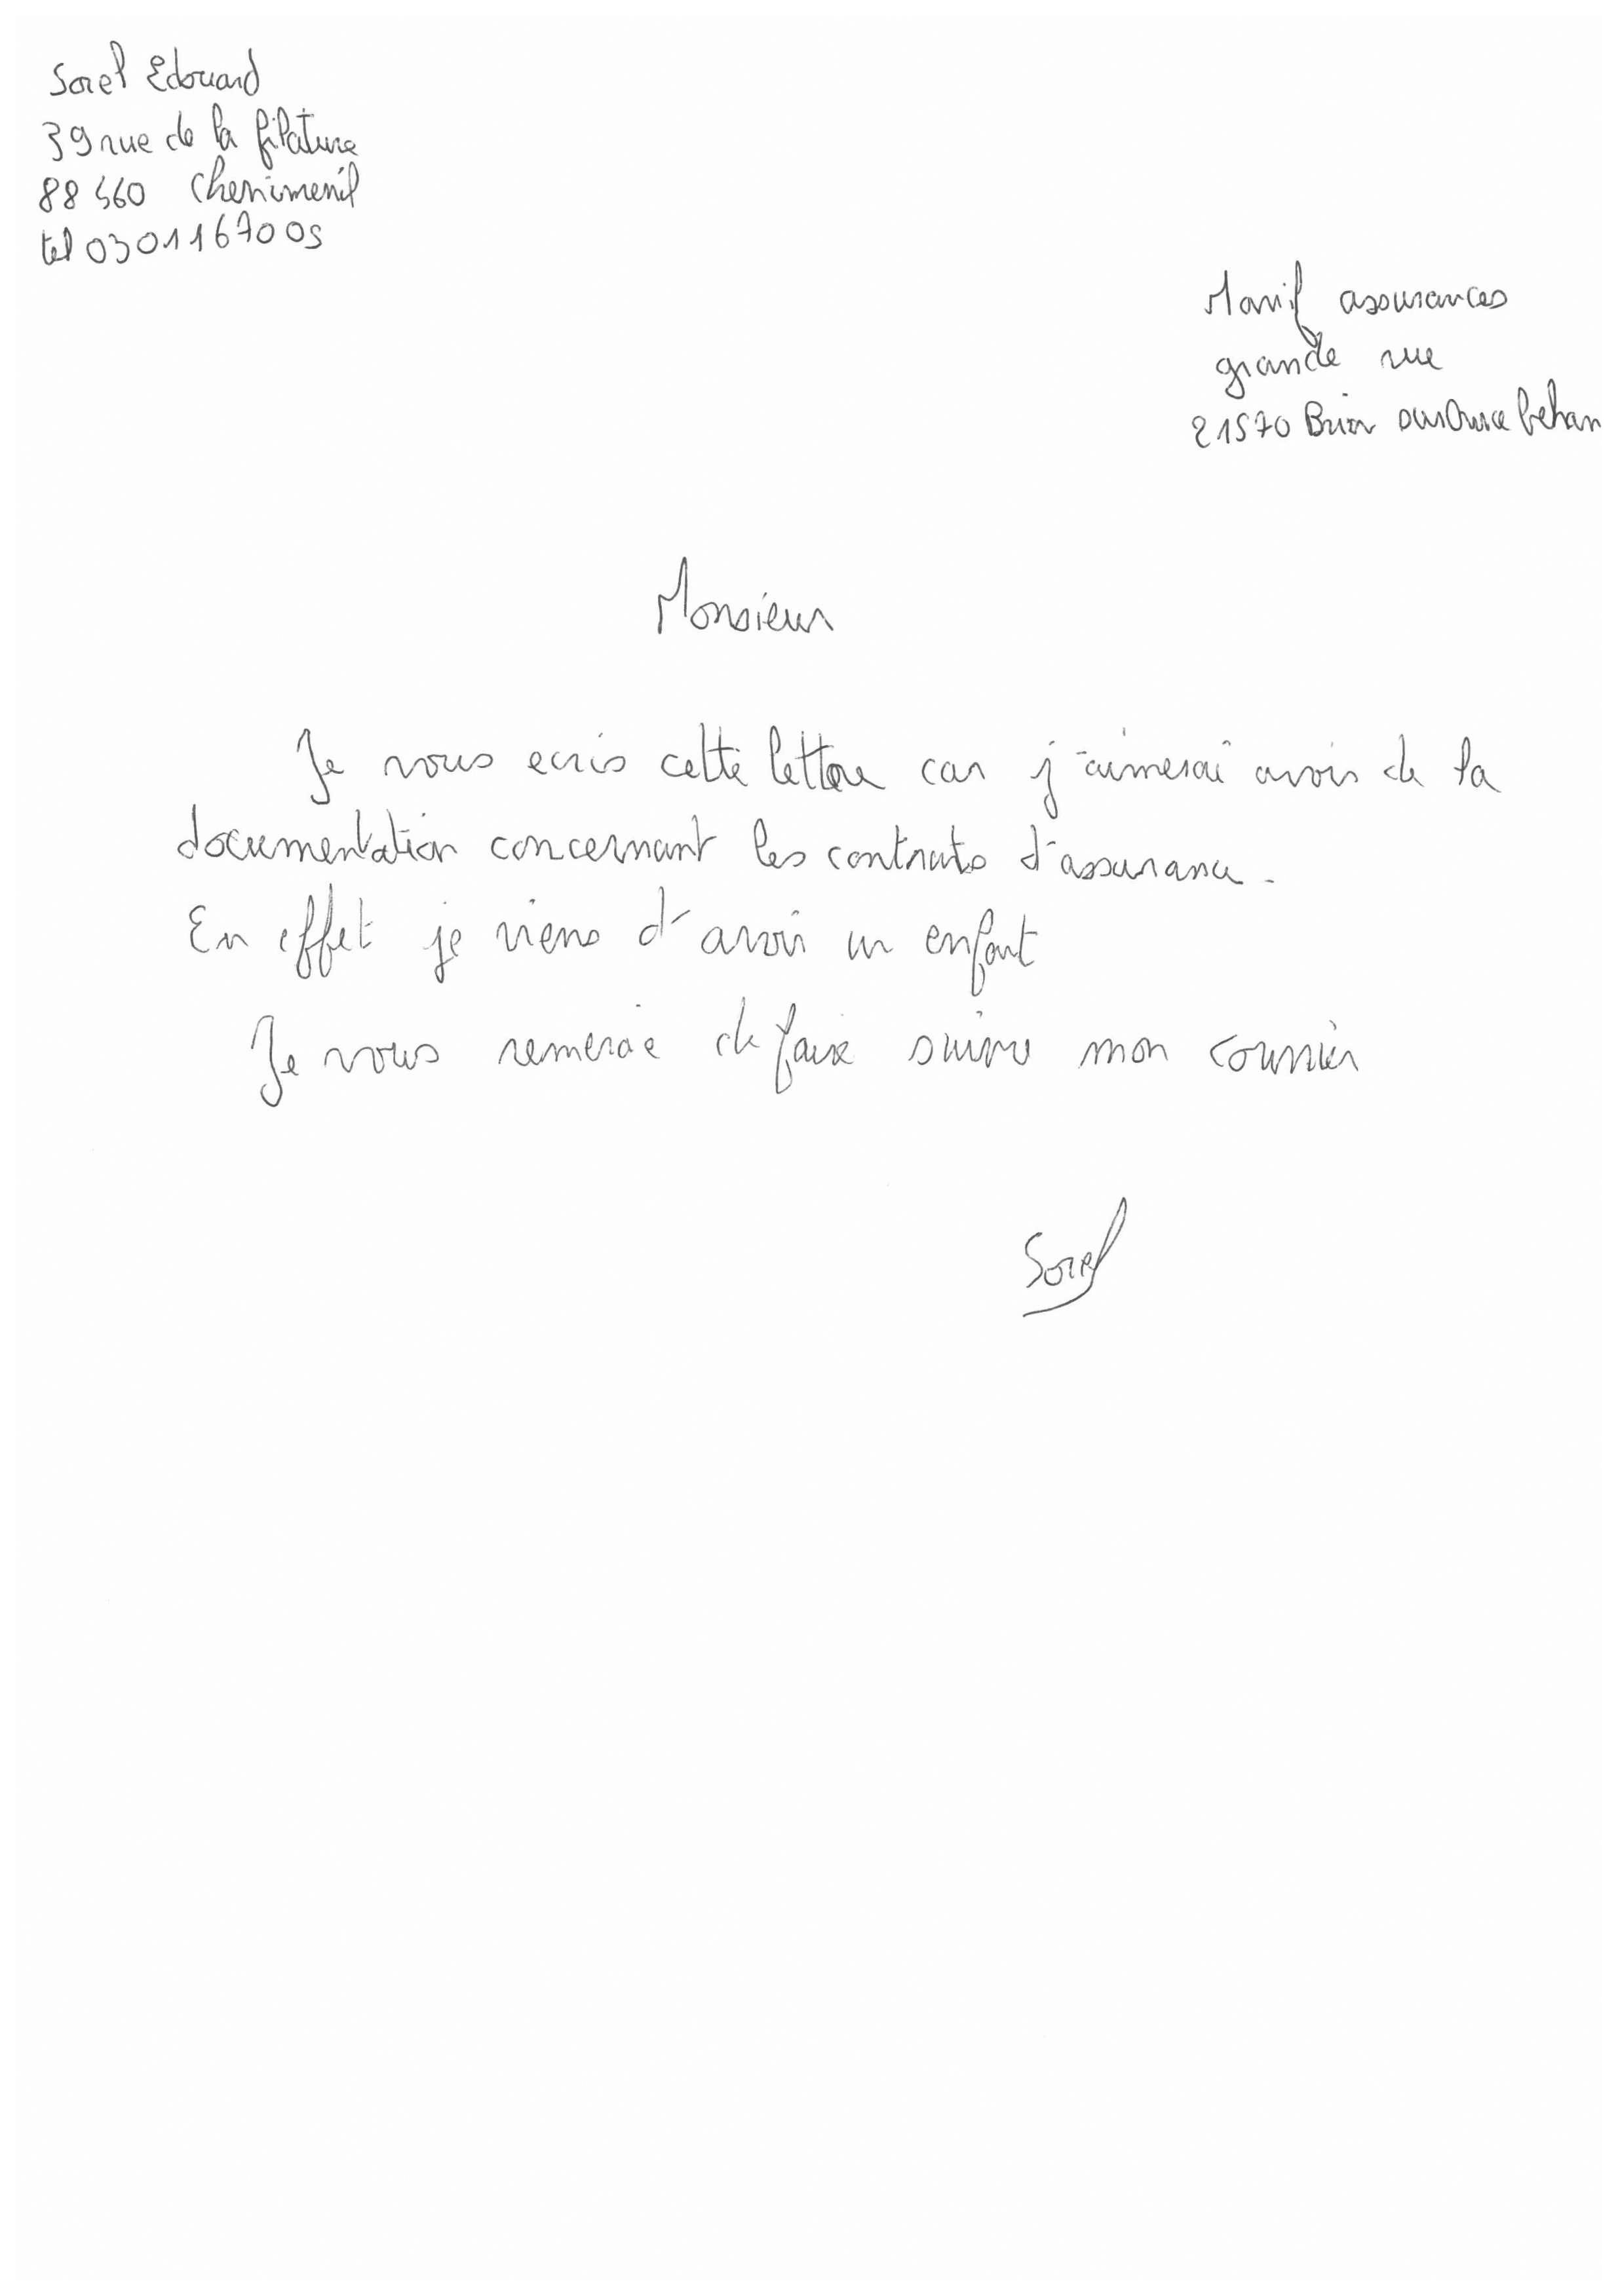 Sorel Edouard
39 rue de la filature
88460 Chenimenil
tel 0301167005
assurances
grande rue
21570 Brion sur Ource
Monsieur
Je vous ecris cette lettre car j'aimerai avoir de la
documentation concernant les contrats d'assurance.
En effet je viens d'avoir un enfant
Je vous remercie de faire suivre mon courrier
Sorel